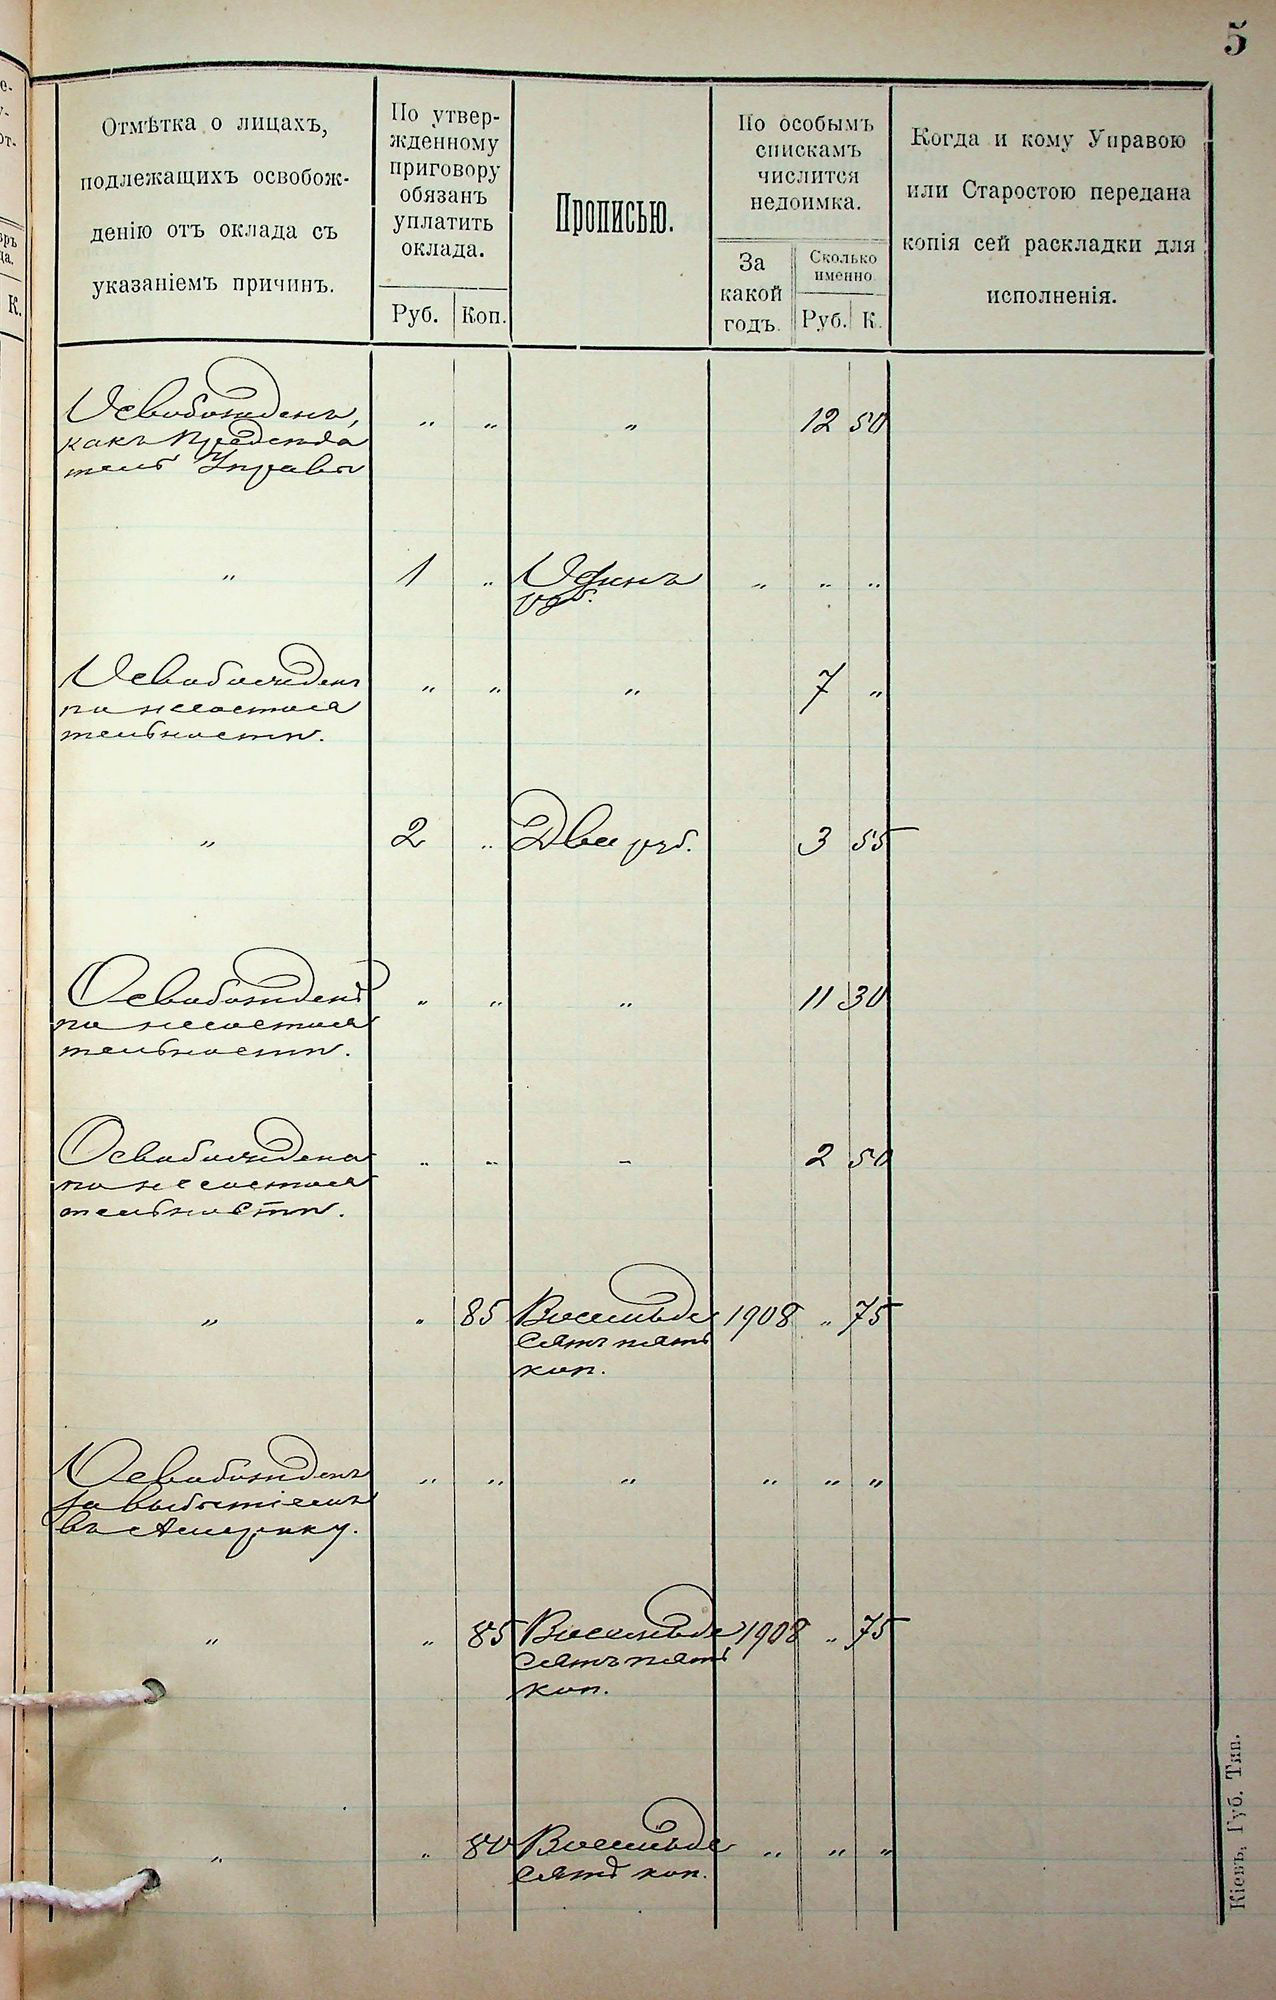 5
Отмѣтка о лицахъ,
подлежащихъ освобож-
денію отъ оклада съ
указаніемъ причинъ.
По утвер-
жденному
приговору
обязанъ
уплатить
оклада.
Руб. Коп.
Прописью.
По особымъ
спискамъ
числится
недоимка.
За
какой
годъ.
Сколько
именно.
Руб. К.
Когда и кому Управою
или Старостою передана
копія сей раскладки для
исполненія.
е-
у-
от-
К.
Освобожденъ, „ „ „ 12 50
какъ Председа
тель Управы
„ 1 „ Одинъ „ „ „
руб.
Освобожден „ „ „ 7 „
по несостоя
тельности.
„ 2 „ Две руб. 3 55
Освобожденъ „ „ „ 11 30
по несостоя
тельности.
Освобождена „ „ „ 2 50
по несостоя
тельности.
„ „ 85 Восемьде 1908 „ 75
сятъ пять
коп.
Освобожденъ „ „ „ „ „ „
за выбытіемъ
въ Америку.
„ „ 85 Восемьде 1908 „ 75
сятъ пять
коп.
„ „ 80 Восемьде „ „ „
сятъ коп.
Кіевъ, Губ. Тип.